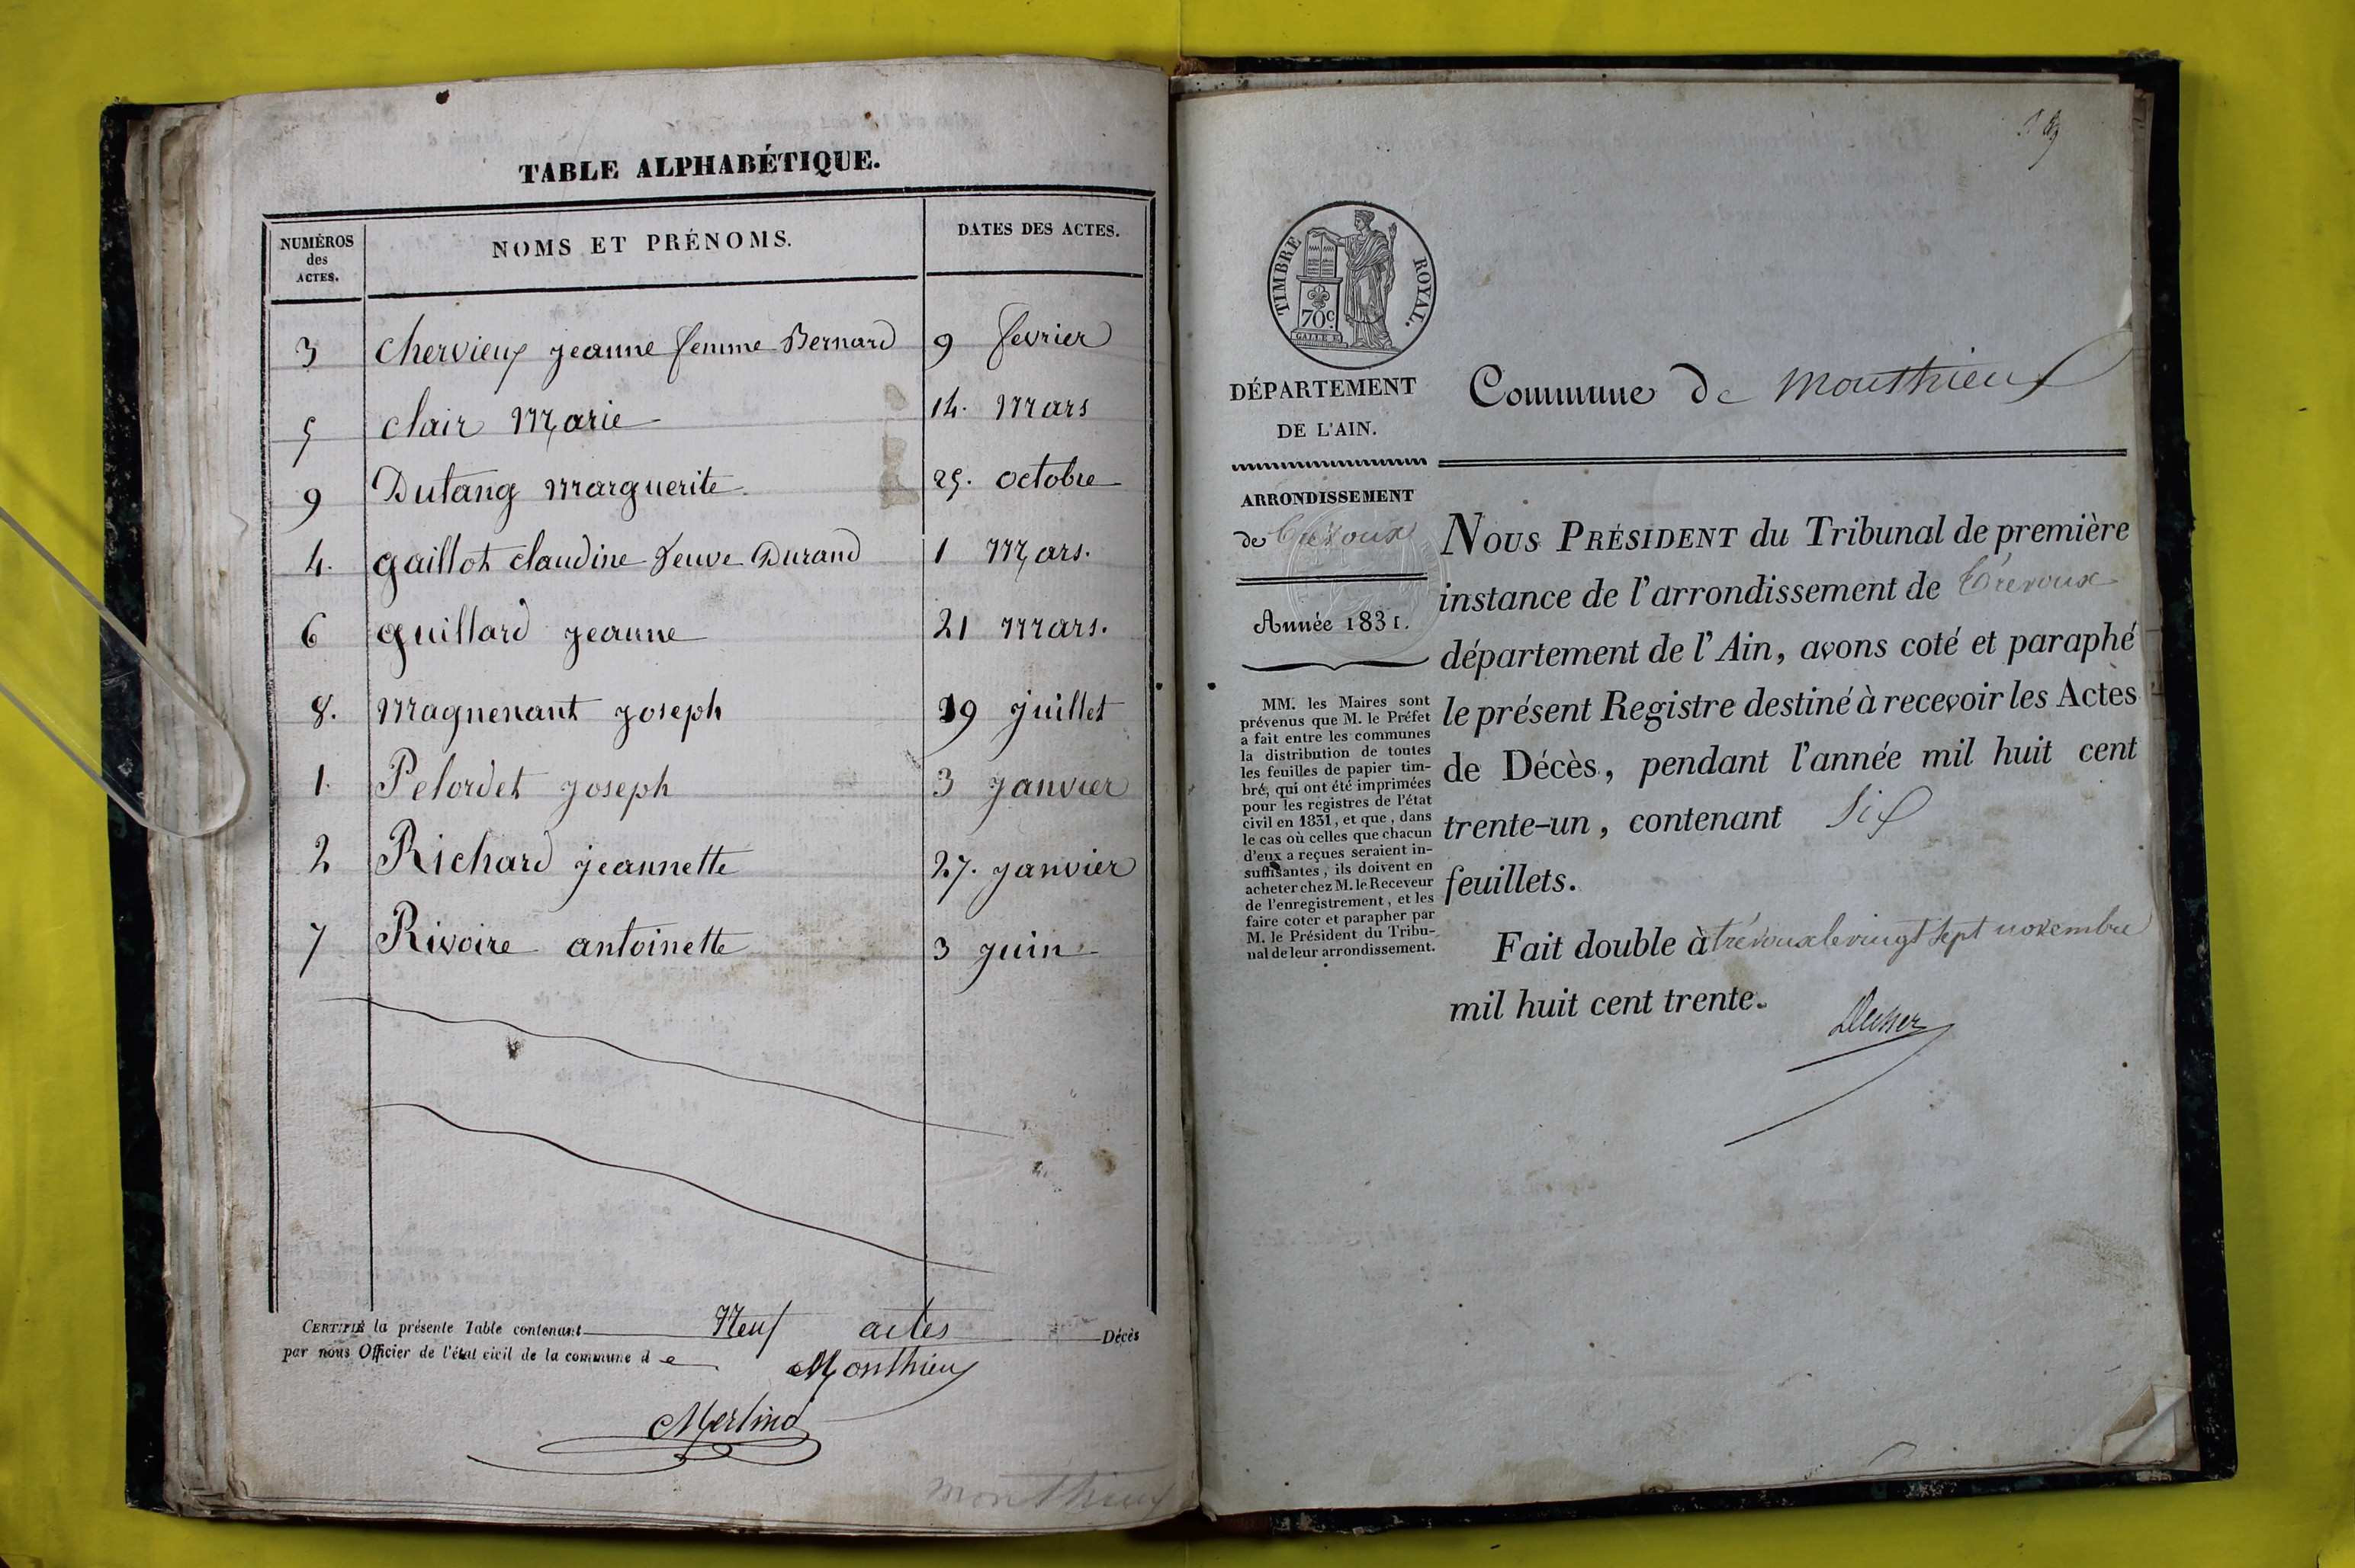 TABLE ALPHABÉTIQUE.
NUMÉROS des ACTES. NOMS ET PRÉNOMS. DATES DES ACTES.
3 Chervieux jeanne femme Bernard 9 fevrier
5 clair Marie 14. Mars
9 Dutang Marguerite 25. octobre
4. gaillot claudine veuve Durand 1 Mars.
6 guillard jeanne 21 Mars.
8. Magnenant joseph 19 juillet
1. Pelordet joseph 3 janvier
2 Richard jeannette 27. janvier
7 Rivoire antoinette 3 juin
CERTIFIÉ la présente Table contenant Neuf actes Décès
par nous Officier de l'état civil de la commune de Monthieux
Merlino
monthieux
TIMBRE ROYAL.
70c
DÉPARTEMENT
DE L'AIN.
Commune de Monthieux
ARRONDISSEMENT
de Trévoux
Année 1831.
MM. les Maires sont
prévenus que M. le Préfet
a fait entre les communes
la distribution de toutes
les feuilles de papier tim-
bré, qui ont été imprimées
pour les registres de l'état
civil en 1831, et que, dans
le cas où celles que chacun
d'eux a reçues seraient in-
suffisantes, ils doivent en
acheter chez M. le Receveur
de l'enregistrement, et les
faire coter et parapher par
M. le Président du Tribu-
nal de leur arrondissement.
NOUS PRÉSIDENT du Tribunal de première
instance de l'arrondissement de Trévoux
département de l'Ain, avons coté et paraphé
le présent Registre destiné à recevoir les Actes
de Décès, pendant l'année mil huit cent
trente-un, contenant Six
feuillets.
Fait double à trévoux le vingt sept novembre
mil huit cent trente.